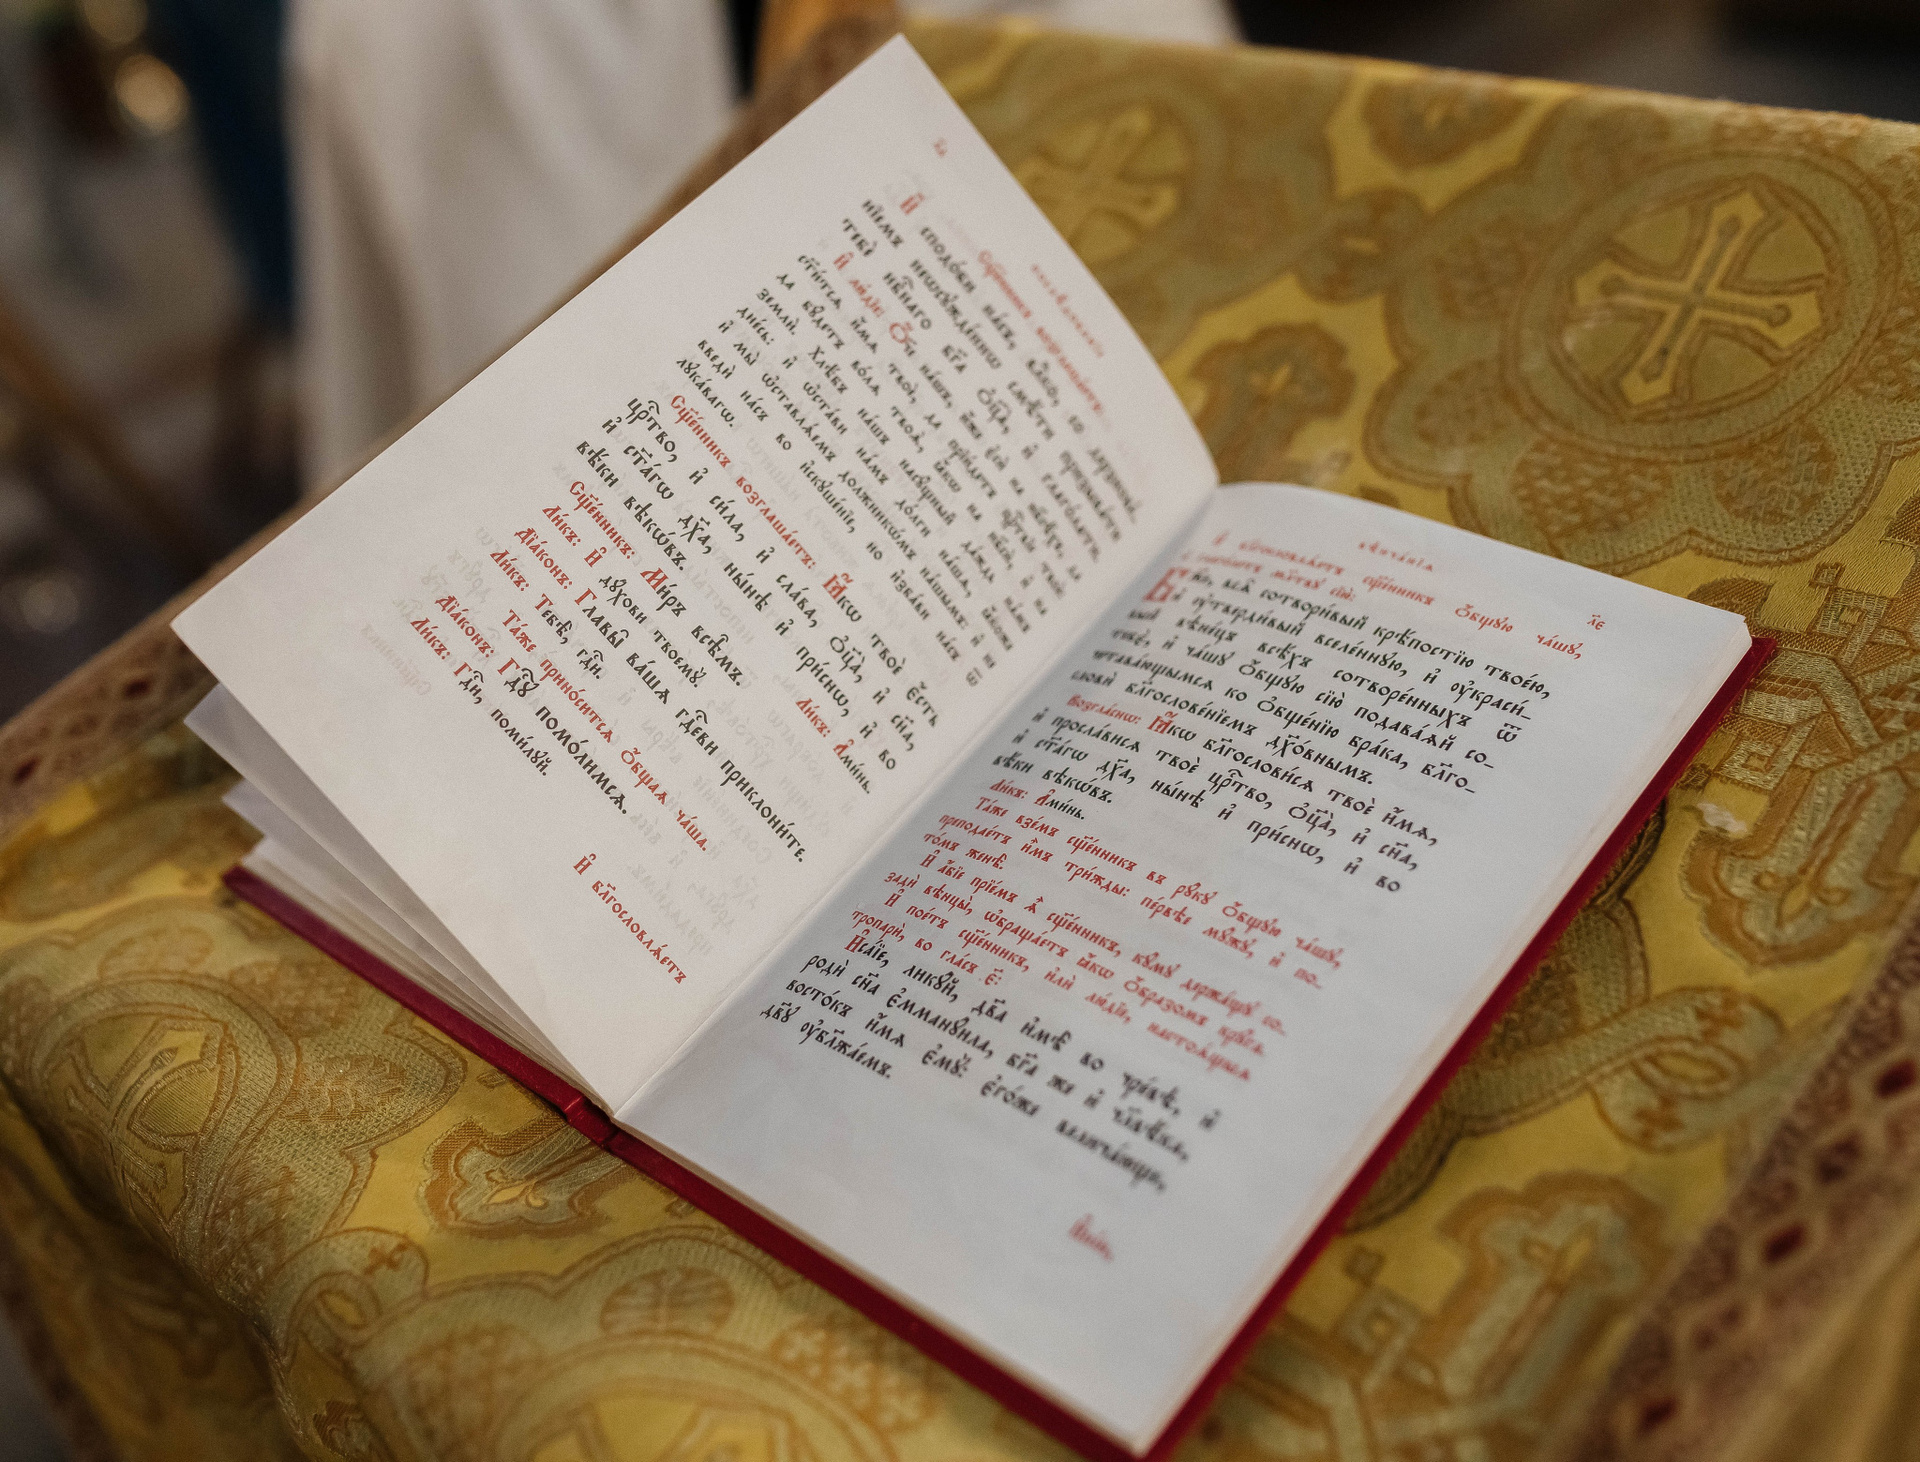 л҃д
послѣ́дованїе
Сщ҃е́нникъ возглаша́етъ:
И҆ сподо́би на́съ, влⷣко, со дерзнове́-
нїемъ неѡсꙋжде́ннѡ смѣ́ти призыва́ти
тебѐ нбⷭ҇наго бг҃а ѻ҆ц҃а̀, и҆ глаго́лати:
И҆ лю́дїе: Ѻ҆́ч҃е на́шъ, и҆́же є҆сѝ на нб҃сѣ́хъ, да
ст҃и́тсѧ и҆́мѧ твоѐ, да прїи́детъ црⷭ҇твїе твоѐ:
да бꙋ́детъ во́лѧ твоѧ̀, ꙗ҆́кѡ на нб҃сѝ, и҆ на
землѝ. Хлѣ́бъ на́шъ насꙋ́щный да́ждь на́мъ
дне́сь: и҆ ѡ҆ста́ви на́мъ до́лги на́шѧ, ꙗ҆́коже
и҆ мы̀ ѡ҆ставлѧ́емъ должникѡ́мъ на́шымъ: и҆ не
введѝ на́съ во и҆скꙋше́нїе, но и҆зба́ви на́съ ѿ
лꙋка́вагѡ.
Сщ҃е́нникъ возглаша́етъ: Ꙗ҆́кѡ твоѐ є҆́сть
црⷭ҇тво, и҆ си́ла, и҆ сла́ва, ѻ҆ц҃а̀, и҆ сн҃а,
и҆ ст҃а́гѡ дх҃а, ны́нѣ и҆ при́снѡ, и҆ во
вѣ́ки вѣкѡ́въ.
Ли́къ: А҆ми́нь.
Сщ҃е́нникъ: Ми́ръ всѣ̑мъ.
Ли́къ: И҆ дꙋ́хови твоемꙋ̀.
Дїа́конъ: Главы̑ ва́шѧ гдⷭ҇еви приклони́те.
Ли́къ: Тебѣ̀, гдⷭ҇и.
Та́же прино́ситсѧ ѻ҆́бщаѧ ча́ша.
Дїа́конъ: Гдⷭ҇ꙋ помо́лимсѧ.
Ли́къ: Гдⷭ҇и, поми́лꙋй.
И҆ блгⷭ҇овлѧ́етъ
вѣнча́нїѧ
л҃е
И҆ блгⷭ҇овлѧ́етъ сщ҃е́нникъ ѻ҆́бщꙋю ча́шꙋ,
и҆ глаго́летъ мл҃твꙋ сїю̀:
Бж҃е, всѧ̑ сотвори́вый крѣ́постїю твое́ю,
и҆ ᲂу҆тверди́вый вселе́ннꙋю, и҆ ᲂу҆краси́-
вый вѣне́цъ всѣ́хъ сотворе́нныхъ ѿ
тебє̀, и҆ ча́шꙋ ѻ҆́бщꙋю сїю̀ подава́ѧй со-
чета́вшымсѧ ко ѻ҆бще́нїю бра́ка, блго-
словѝ благослове́нїемъ дꙋхо́внымъ.
Возгла́снѡ: Ꙗ҆́кѡ благослови́сѧ твоѐ и҆́мѧ,
и҆ просла́висѧ твоѐ црⷭ҇тво, ѻ҆ц҃а̀, и҆ сн҃а,
и҆ ст҃а́гѡ дх҃а, ны́нѣ и҆ при́снѡ, и҆ во
вѣ́ки вѣкѡ́въ.
Ли́къ: А҆ми́нь.
Та́же взе́мъ сщ҃е́нникъ въ рꙋ́кꙋ ѻ҆́бщꙋю ча́шꙋ,
преподае́тъ и҆̀мъ три́жды: пе́рвѣе мꙋ́жꙋ, и҆ по-
то́мъ женѣ̀.
И҆ а҆́бїе прїе́мъ ѧ҆̀ сщ҃е́нникъ, кꙋ́мꙋ держа́щꙋ со-
задѝ вѣнцы̀, ѡ҆браща́етъ ꙗ҆́кѡ ѻ҆́бразомъ крꙋ́га.
И҆ пое́тъ сщ҃е́нникъ, и҆лѝ лю́дїе, настоѧ́щыѧ
тропарѝ, во гла́съ є҃:
И҆са́їе, ликꙋ́й, дв҃а и҆мѣ̀ во чре́вѣ, и҆
родѝ сн҃а є҆мманꙋ́ила, бг҃а же и҆ чл҃вѣ́ка,
восто́къ и҆́мѧ є҆мꙋ̀: є҆го́же велича́юще,
дв҃ꙋ ᲂу҆блажа́емъ.